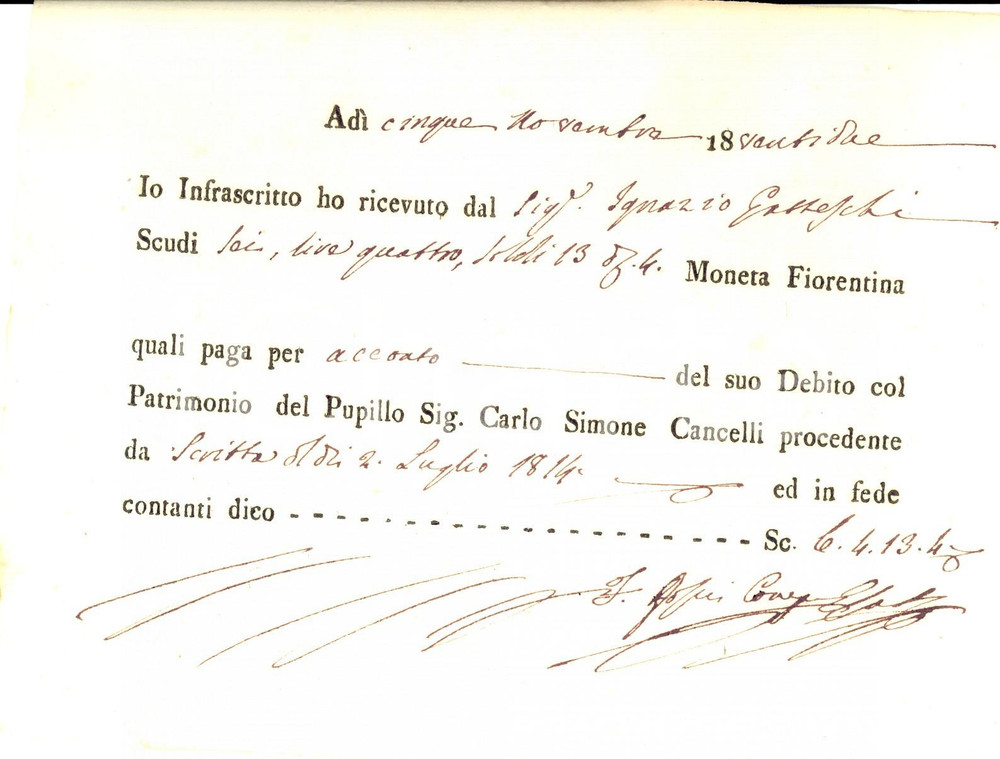 Adì cinque Novembre 18ventidue
Io Infrascritto ho ricevuto dal Sigr. Ignazio Gatteschi
Scudi sei, lire quattro, soldi 13 d. 4. Moneta Fiorentina
quali paga per acconto del suo Debito col
Patrimonio del Pupillo Sig. Carlo Simone Cancelli procedente
da Scritta de dì 2. Luglio 1814. ed in fede
contanti dico Sc. 6. 4. 13. 4